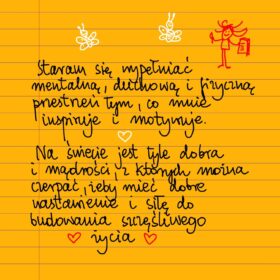 Staram się wypełniać
mentalną, duchową i fizyczną
przestrzeń tym, co mnie
inspiruje i motywuje.
Na świecie jest tyle dobra
i mądrości, z których można
czerpać, żeby mieć dobre
nastawienie i siłę do
budowania szczęśliwego
życia